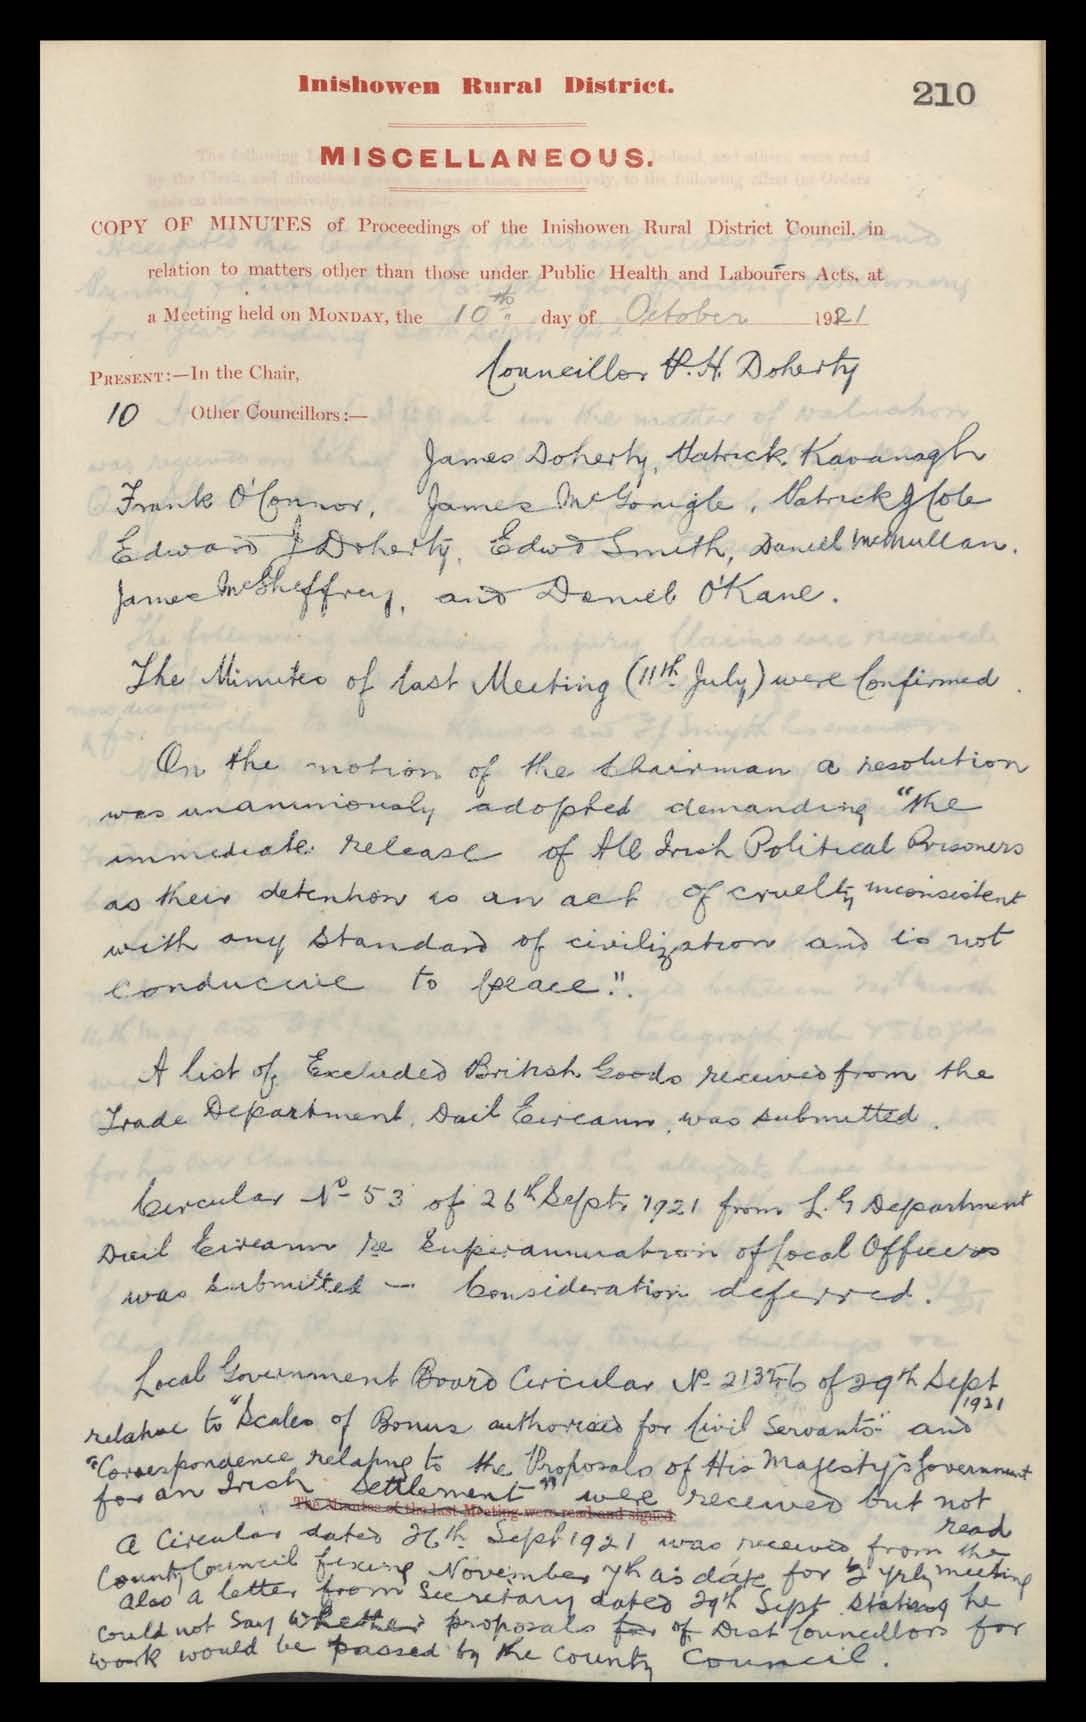 Inishowen Rural District.
210
MISCELLANEOUS.
COPY OF MINUTES of Proceedings of the Inishowen Rural District Council, in
relation to matters other than those under Public Health and Labourers Acts, at
a Meeting held on MONDAY, the 10th day of October 1921
PRESENT:—In the Chair, Councillor P. H. Doherty
10 Other Councillors:—
James Doherty, Patrick Kavanagh
Frank O'Connor, James McGonigle, Patrick J Cole
Edward J Doherty, Edwd Smith, Daniel McMullan.
James McSheffrey, and Daniel O'Kane.
The Minutes of last Meeting (11th July) were Confirmed.
On the motion of the Chairman a resolution
was unanimously adopted demanding "the
immediate release of All Irish Political Prisoners
as their detention is an act of cruelty inconsistent
with any standard of civilization and is not
conducive to peace.".
A list of Excluded British Goods received from the
Trade Department, Dail Eireann, was submitted.
Circular No 53 of 26th Sept. 1921 from L. G Department
Dail Eireann re Superannuation of Local Officers
was submitted — Consideration deferred.
Local Government Board Circular No of 29th Sept
1921
relative to "Scales of Bonus authorised for Civil Servants" and
"Correspondence relating to the Proposals of His Majesty's Government
for an Irish Settlement" were received but not
The Minutes of the last Meeting were read and signed
read
A Circular dated 26th Sept 1921 was received from the
County Council fixing November 7th as date for ½ yrly meeting
also a letter from Secretary dated 29th Sept stating he
could not say whether proposals for of Dist Councillors for
work would be passed by the County Council.